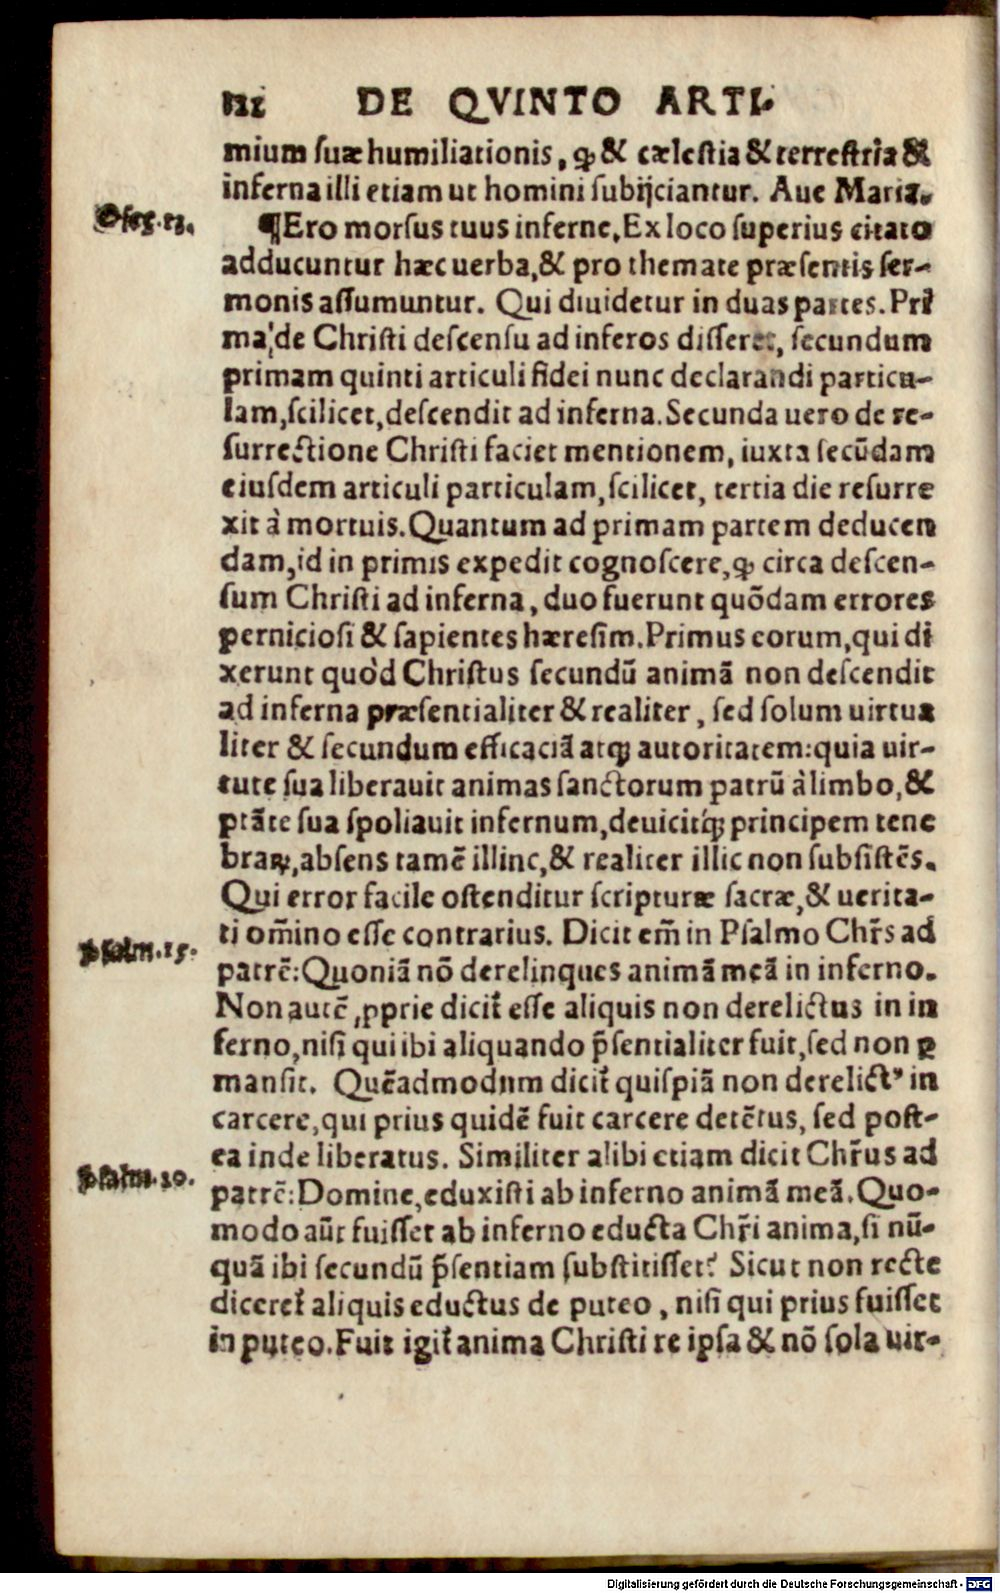 DE QVINTO ARTI-
mium suæ humiliationis, ꝙ & cælestia & terrestria &
inferna illi etiam ut homini subijciantur. Aue Maria.
Osee. 13.
¶Ero morsus tuus inferne. Ex loco superius citato
adducuntur hæc uerba, & pro themate præsentis ser-
monis assumuntur. Qui diuidetur in duas partes. Pri
ma de Christi descensu ad inferos disseret, secundum
primam quinti articuli fidei nunc declarandi particu-
lam, scilicet, descendit ad inferna. Secunda uero de re-
surrectione Christi faciet mentionem, iuxta secũdam
eiusdem articuli particulam, scilicet, tertia die resurre
xit à mortuis. Quantum ad primam partem deducen
dam, id in primis expedit cognoscere, ꝙ circa descen-
sum Christi ad inferna, duo fuerunt quõdam errores
perniciosi & sapientes hæresim. Primus eorum, qui di
xerunt quòd Christus secundũ animã non descendit
ad inferna præsentialiter & realiter, sed solum uirtua
liter & secundum efficaciã atꝙ autoritatem: quia uir-
tute sua liberauit animas sanctorum patrũ à limbo, &
ptãte sua spoliauit infernum, deuicitꝙ́; principem tene
braꝝ, absens tamẽ illinc, & realiter illic non subsistẽs.
Qui error facile ostenditur scripturæ sacræ, & uerita-
ti om̃ino esse contrarius. Dicit em̃ in Psalmo Chr̃s ad
Psalm. 15.
patrẽ: Quoniã nõ derelinques animã meã in inferno.
Non autẽ ꝓprie dicit̃ esse aliquis non derelictus in in
ferno, nisi qui ibi aliquando p̃sentialiter fuit, sed non ꝑ
mansit. Quẽadmodum dicit̃ quispiã non derelictꝰ in
carcere, qui prius quidẽ fuit carcere detẽtus, sed post-
ea inde liberatus. Similiter alibi etiam dicit Chr̃us ad
Psalm. 30.
patrẽ: Domine, eduxisti ab inferno animã meã. Quo-
modo aũt fuisset ab inferno educta Chr̃i anima, si nũ-
quã ibi secundũ p̃sentiam substitisset? Sicut non recte
diceret̃ aliquis eductus de puteo, nisi qui prius fuisset
in puteo. Fuit igit̃ anima Christi re ipsa & nõ sola uir-
Digitalisierung gefördert durch die Deutsche Forschungsgemeinschaft - DFG